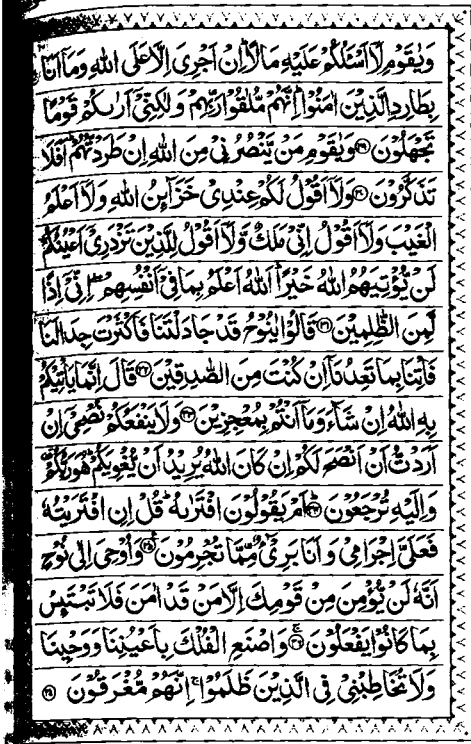 وَيٰقَوْمِ لَآ اَسْـَٔلُكُمْ عَلَيْهِ مَالًا ؕ اِنْ اَجْرِىَ اِلَّا عَلَى اللّٰهِ وَمَآ اَنَا
بِطَارِدِ الَّذِيْنَ اٰمَنُوْا ؕ اِنَّهُمْ مُّلٰقُوْا رَبِّهِمْ وَلٰكِنِّىْۤ اَرٰىكُمْ قَوْمًا
تَجْهَلُوْنَ ۝۲۹ وَيٰقَوْمِ مَنْ يَّنْصُرُنِىْ مِنَ اللّٰهِ اِنْ طَرَدْتُّهُمْ ؕ اَفَلَا
تَذَكَّرُوْنَ ۝۳۰ وَلَآ اَقُوْلُ لَكُمْ عِنْدِىْ خَزَآئِنُ اللّٰهِ وَلَآ اَعْلَمُ
الْغَيْبَ وَلَآ اَقُوْلُ اِنِّىْ مَلَكٌ وَّلَآ اَقُوْلُ لِلَّذِيْنَ تَزْدَرِىْۤ اَعْيُنُكُمْ
لَنْ يُّؤْتِيَهُمُ اللّٰهُ خَيْرًا ؕ اَللّٰهُ اَعْلَمُ بِمَا فِىْۤ اَنْفُسِهِمْ ۖۚ اِنِّىْۤ اِذًا
لَّمِنَ الظّٰلِمِيْنَ ۝۳۱ قَالُوْا يٰنُوْحُ قَدْ جَادَلْتَنَا فَاَكْثَرْتَ جِدَالَنَا
فَاْتِنَا بِمَا تَعِدُنَآ اِنْ كُنْتَ مِنَ الصّٰدِقِيْنَ ۝۳۲ قَالَ اِنَّمَا يَاْتِيْكُمْ
بِهِ اللّٰهُ اِنْ شَآءَ وَمَآ اَنْتُمْ بِمُعْجِزِيْنَ ۝۳۳ وَلَا يَنْفَعُكُمْ نُصْحِىْۤ اِنْ
اَرَدْتُّ اَنْ اَنْصَحَ لَكُمْ اِنْ كَانَ اللّٰهُ يُرِيْدُ اَنْ يُّغْوِيَكُمْ ؕ هُوَ رَبُّكُمْ
وَاِلَيْهِ تُرْجَعُوْنَ ۝۳۴ اَمْ يَقُوْلُوْنَ افْتَرٰىهُ ؕ قُلْ اِنِ افْتَرَيْتُهٗ
فَعَلَىَّ اِجْرَامِىْ وَاَنَا بَرِىْٓءٌ مِّمَّا تُجْرِمُوْنَ ۝۳۵ وَاُوْحِىَ اِلٰى نُوْحٍ
اَنَّهٗ لَنْ يُّؤْمِنَ مِنْ قَوْمِكَ اِلَّا مَنْ قَدْ اٰمَنَ فَلَا تَبْتَئِسْ
بِمَا كَانُوْا يَفْعَلُوْنَ ۝۳۶ وَاصْنَعِ الْفُلْكَ بِاَعْيُنِنَا وَوَحْيِنَا
وَلَا تُخَاطِبْنِىْ فِى الَّذِيْنَ ظَلَمُوْا ۚ اِنَّهُمْ مُّغْرَقُوْنَ ۝۳۷